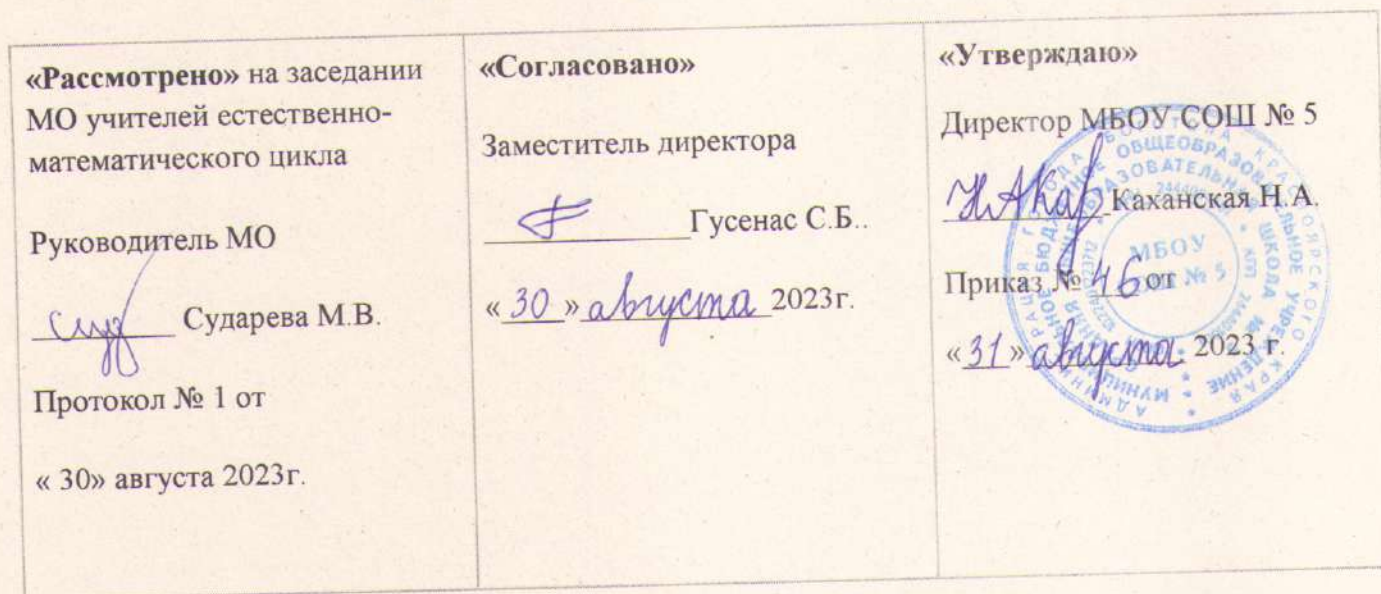 «Рассмотрено» на заседании
МО учителей естественно-
математического цикла
Руководитель МО
Сударева М.В.
Протокол № 1 от
« 30» августа 2023г.
«Согласовано»
Заместитель директора
Гусенас С.Б..
« 30 » августа 2023г.
«Утверждаю»
Директор МБОУ СОШ № 5
Каханская Н.А.
Приказ № 46 от
« 31 » августа 2023 г.
МБОУ
№ 5